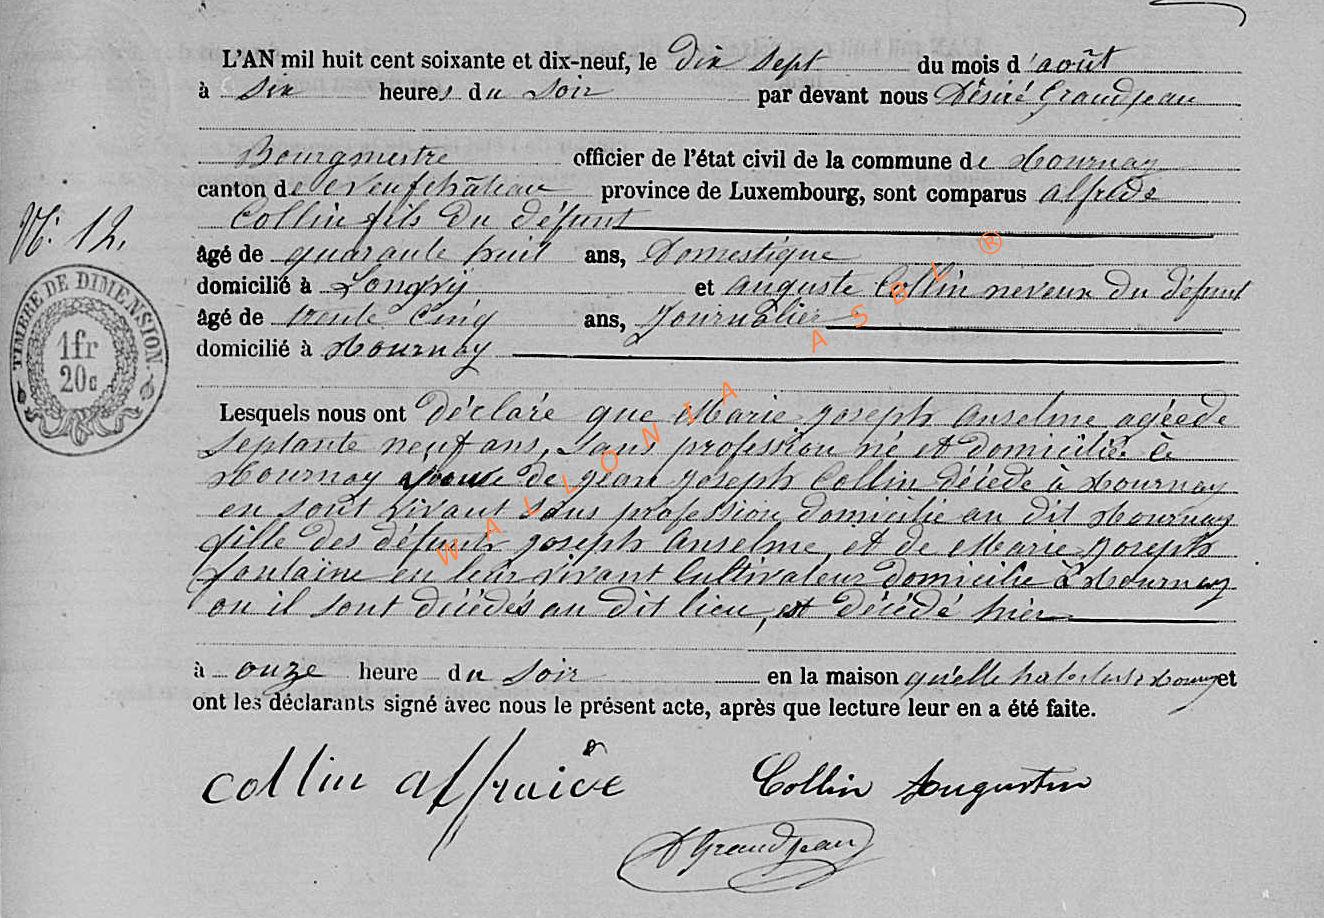 L'AN mil huit cent soixante et dix-neuf, le dix sept du mois d'août
à six heures du soir par devant nous Désiré Grandjean
Bourgmestre officier de l'état civil de la commune de Tournay
canton de Neufchâteau province de Luxembourg, sont comparus alfrede
Collin fils du défunt
N: 12.
âgé de quarante huit ans, Domestique
domicilié à Longvy et auguste Collin neveux du défunt
âgé de trente cinq ans, Journalier
domicilié à Tournay
TIMBRE DE DIMENSION.
1fr
20c
Lesquels nous ont déclaré que Marie joseph anselme agéede
septante neuf ans, sans profession né et domiciliée à
Tournay épouse de jean joseph Collin décédé à Tournay
en sont vivant sans profession domicilié au dit Tournay
fille des défunts joseph anselme, et de Marie joseph
fontaine en leur vivant Cultivateur domicilié à Tournay
ou il sont décédés au dit lieu, est décédé hier
à onze heure du soir en la maison qu'elle à Tournay et
ont les déclarants signé avec nous le présent acte, après que lecture leur en a été faite.
collin alfraide
Collin Augustin
D Grandjean
WALLONIA ASBL ®